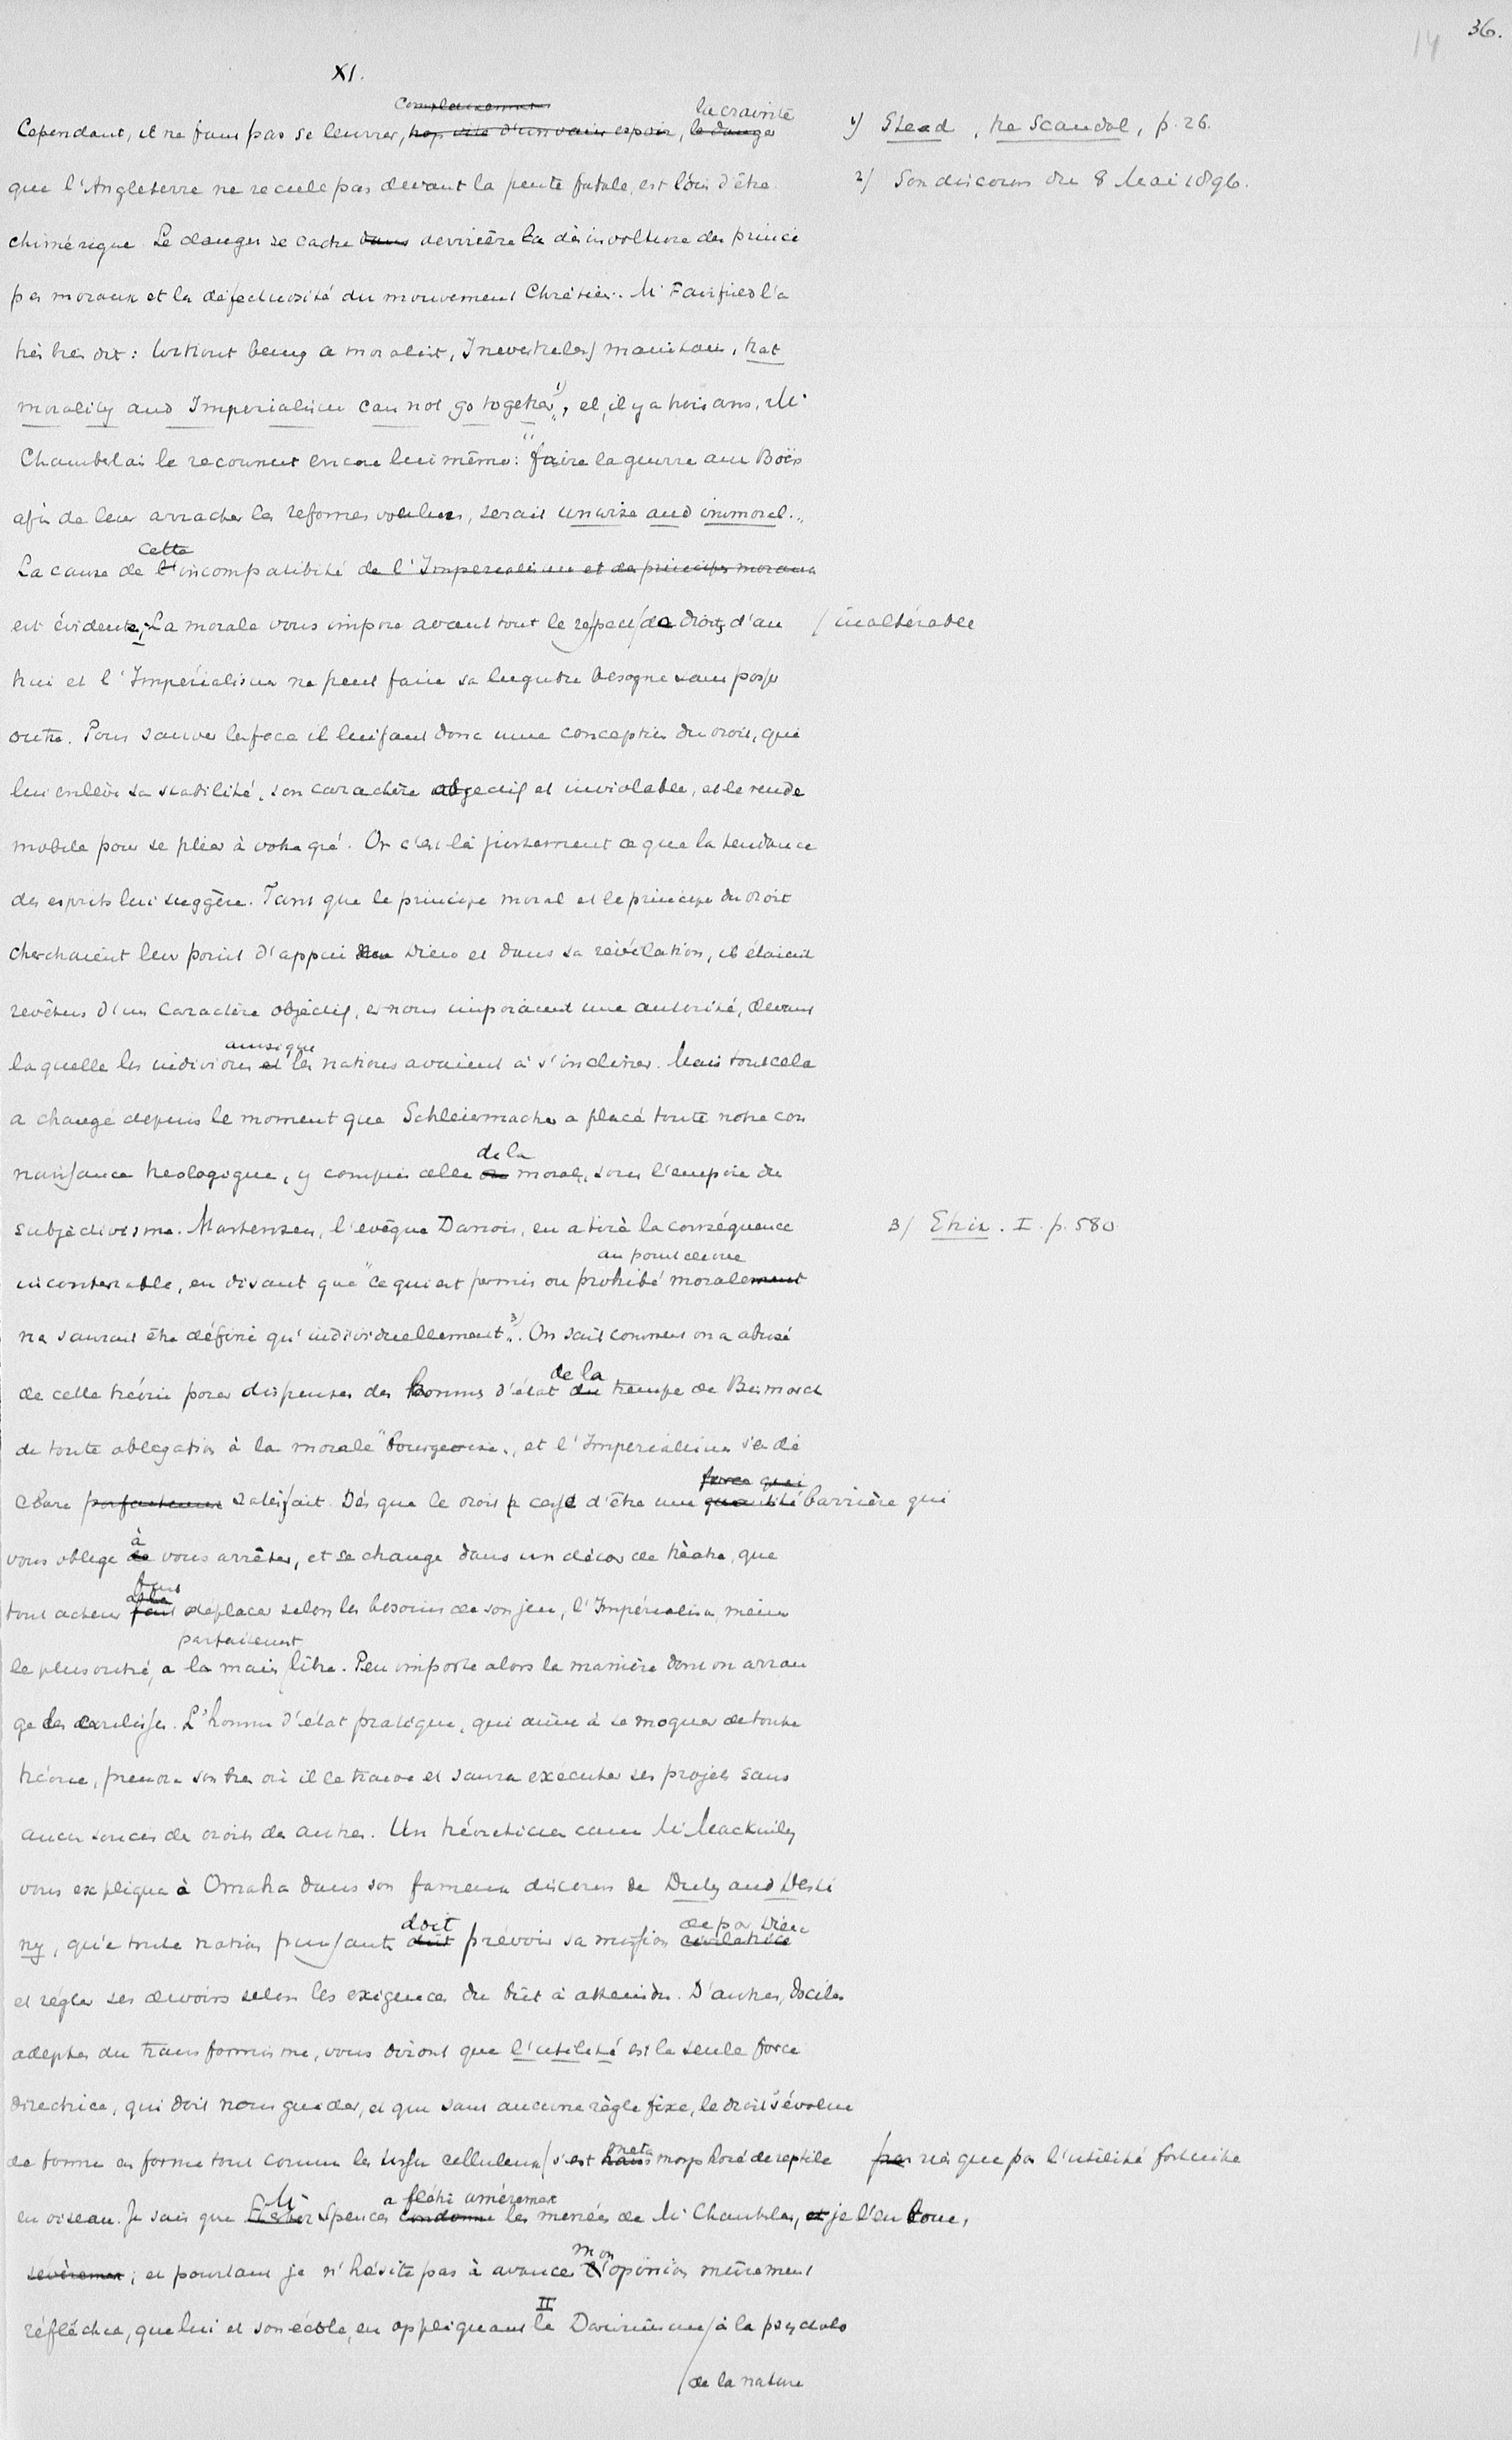 36.
14
XI.
complaisamment
la crainte
Cependant, il ne faut pas se leurrer, trop vite d'un vain espoir, le danger
1) Stead, the Scandal, p. 26.
que l'Angleterre ne recule pas devant la pente fatale, est loin d'être
2) Son discours du 8 Mai 1896.
chimérique. Le danger se cache dans derrière la désinvolture des princi
pes moraux et la défectuosité du mouvement Chrétien. Mr Fairfield l'a
très bien dit: Without being a moralist, I nevertheless maintain, that
morality and Imperialism can not go together 1)", et, il y a trois ans, Mr
Chamberlai le reconnut encore lui même: "faire la guerre aux Boërs
afin de leur arracher les reformes voulues, serait unwise and immoral."
cette
La cause de l'incompatibilité de l'Imperialisme et des principes moraux
est évidente, La morale vous impose avant tout le respect / de droits d'au
/ inaltérable
trui et l'Impérialisme ne peut faire sa lugubre besogne sans passer
outre. Pour sauver la face il lui faut donc une conception du droit, qui
lui enlève sa stabilité, son caractère objectif et inviolable, et le rende
mobile pour se plier à votre gré. Or c'est là justement ce que la tendance
des esprits lui suggère. Tant que le principe moral et le principe du droit
cherchaient leur point d'appui en Dieu et dans sa révélation, ils étaient
revêtus d'un caractère objectif, et nous imposaient une autorité, devant
ainsi que
laquelle les individus et les nations avaient à s'incliner. Mais tout cela
a changé depuis le moment que Schleiermacher a placé toute notre con
de la
naissance theologique, y compris celle de morale, sous l'empire du
subjectivisme. Martensen, l'evêque Danois, en a tiré la conséquence
3) Ethik. I. p. 580
au point de vue
incontestable, en disant que "ce qui est permis ou prohibé moralement
ne saurait être défini qu'individuellement 3)". On sait comment on a abusé
de la
de cette théorie pour dispenser des hommes d'état du trempe de Bismarck
de toute obligation à la morale "bourgeoise", et l'Imperialisme s'en dé
force qui
clare parfaitement satisfait. Dès que le droit cesse d'être une quantité barrière qui
à
vous oblige de vous arrêter, et se change dans un décor de théatre, que
tout acteur peut déplacer selon les besoins de son jeu, l'Impérialisme, même
parfaitement
le plus outré, a la main libre. Peu importe alors la manière dont on arran
ge les coulisses. L'homme d'état pratique, qui aime à se moquer de toute
théorie, prendra son bien où il le trouve et saura exécuter ses projets sans
aucun soucis de droits des autres. Un théoreticien comme Mr Mackinley
vous explique à Omaha dans son fameux discours de Duty and Desti
doit
de par Dieu
ny, qu'e toute nation puissante doit prévoir sa mission civilatrice
et régler ses devoirs selon les exigences du but à atteindre. D'autres, dociles
adeptes du transformisme, vous diront que l'utilité est la seule force
directrice, qui doit nous guider, et que sans aucune règle fixe, le droit s'évolue
meta
de forme en forme tout comme les tissu celluleux / s'est trans morphosé de reptile
pas rien que par l'utilité fortuite
Mr
a flétri amèrement
en oiseau. Je sais que Spencer condamne les menées de Mr Chamberlai, et je l'en loue,
mon
sévèrement; et pourtant je n'hésite pas à avancer l'opinion mûrement
II
réfléchie, que lui et son école, en appliquant le Darwinisme / à la psycholo
/ de la nature